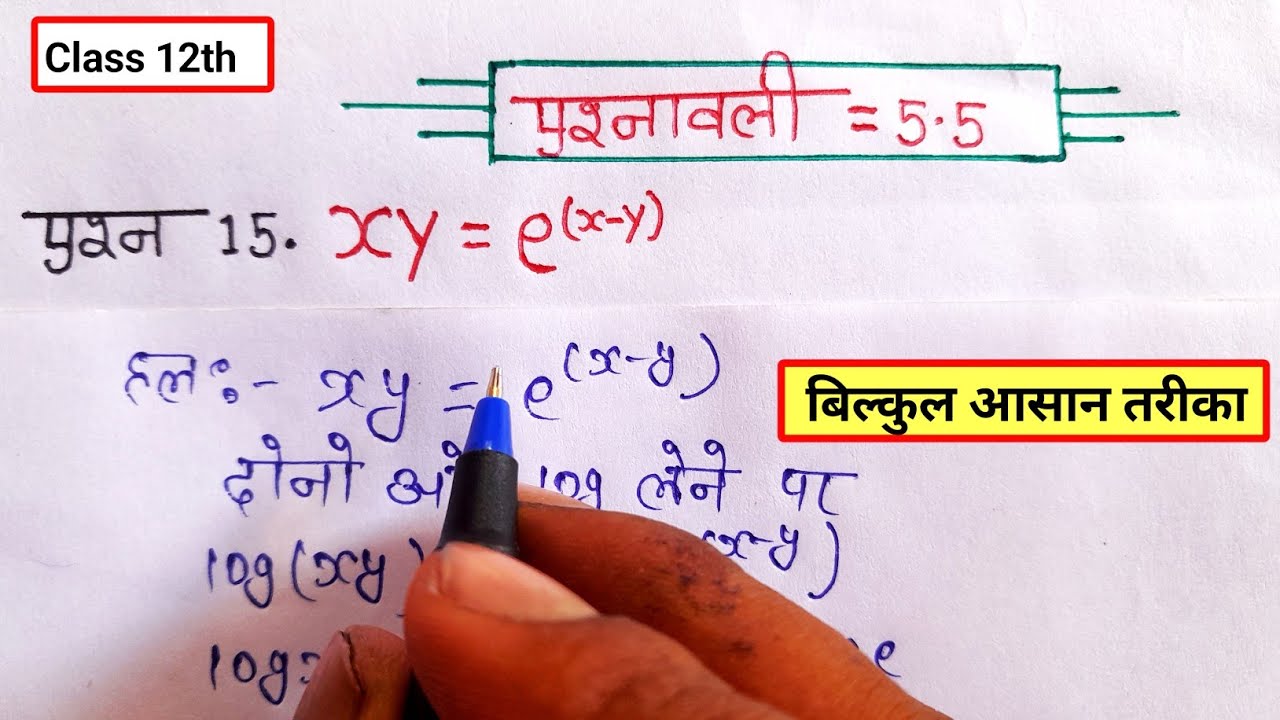 Class 12th
प्रश्नावली = 5.5
प्रश्न 15. xy = e^(x-y)
हलः- xy = e^(x-y)
बिल्कुल आसान तरीका
दोनो log लेने पर
log(xy (x-y))
log e